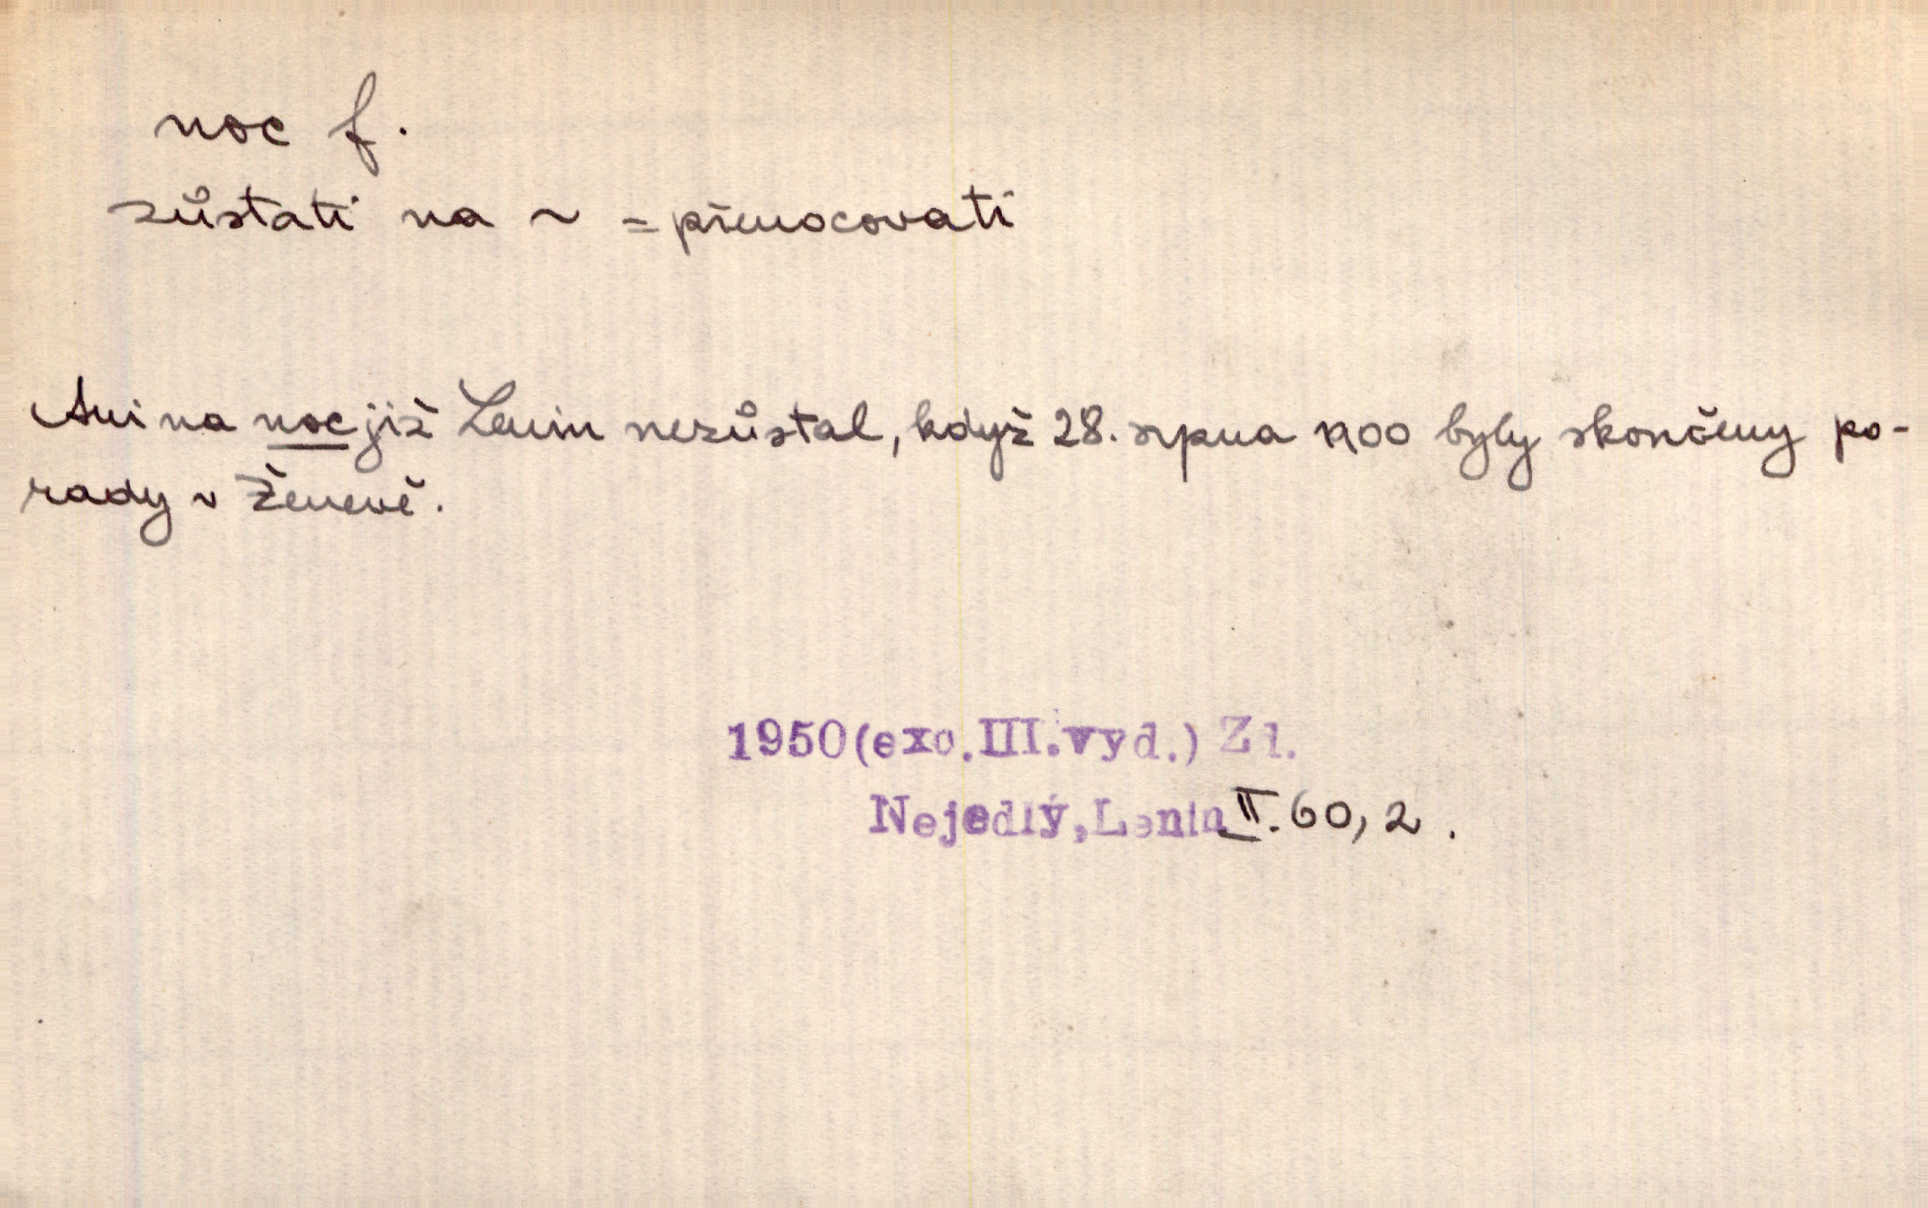 noc f.
zůstati na ~ = přenocovati
Ani na noc již Lenin nezůstal, když 28. srpna 1900 byly skončeny po-
rady v Ženevě.
1950(exc.III.vyd.) Zd.
Nejedlý,Lenin II. 60, 2 .